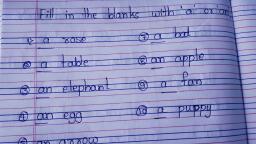 Fill in the blanks with 'a' or 'an'
a rose
a table
③ an elephant
④ an egg
an arrow
⑦ a bat
⑧ an apple
⑨ a fan
⑩ a puppy